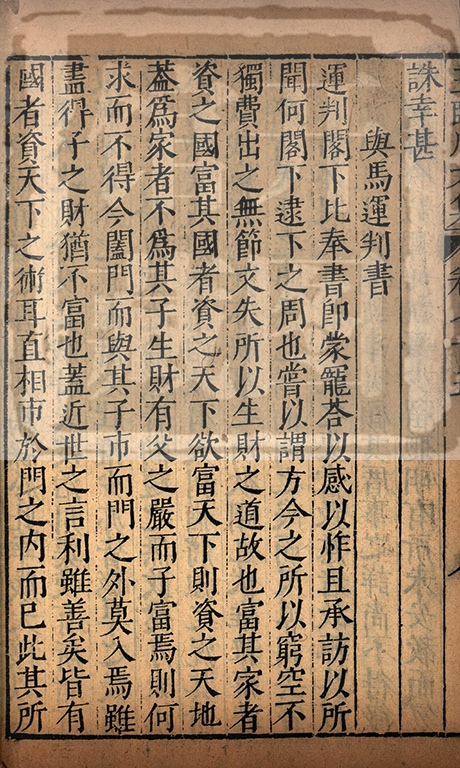 誅幸甚
與馬運判書
運判閣下比奉書即蒙寵荅以感以怍且承訪以所
聞何閣下逮下之周也嘗以謂方今之所以窮空不
獨費出之無節又失所以生財之道故也富其家者
資之國富其國者資之天下欲富天下則資之天地
蓋爲家者不爲其子生財有父之嚴而子富焉則何
求而不得今闔門而與其子市而門之外莫入焉雖
盡得子之財猶不富也蓋近世之言利雖善矣皆有
國者資天下之術耳直相市於門之内而已此其所